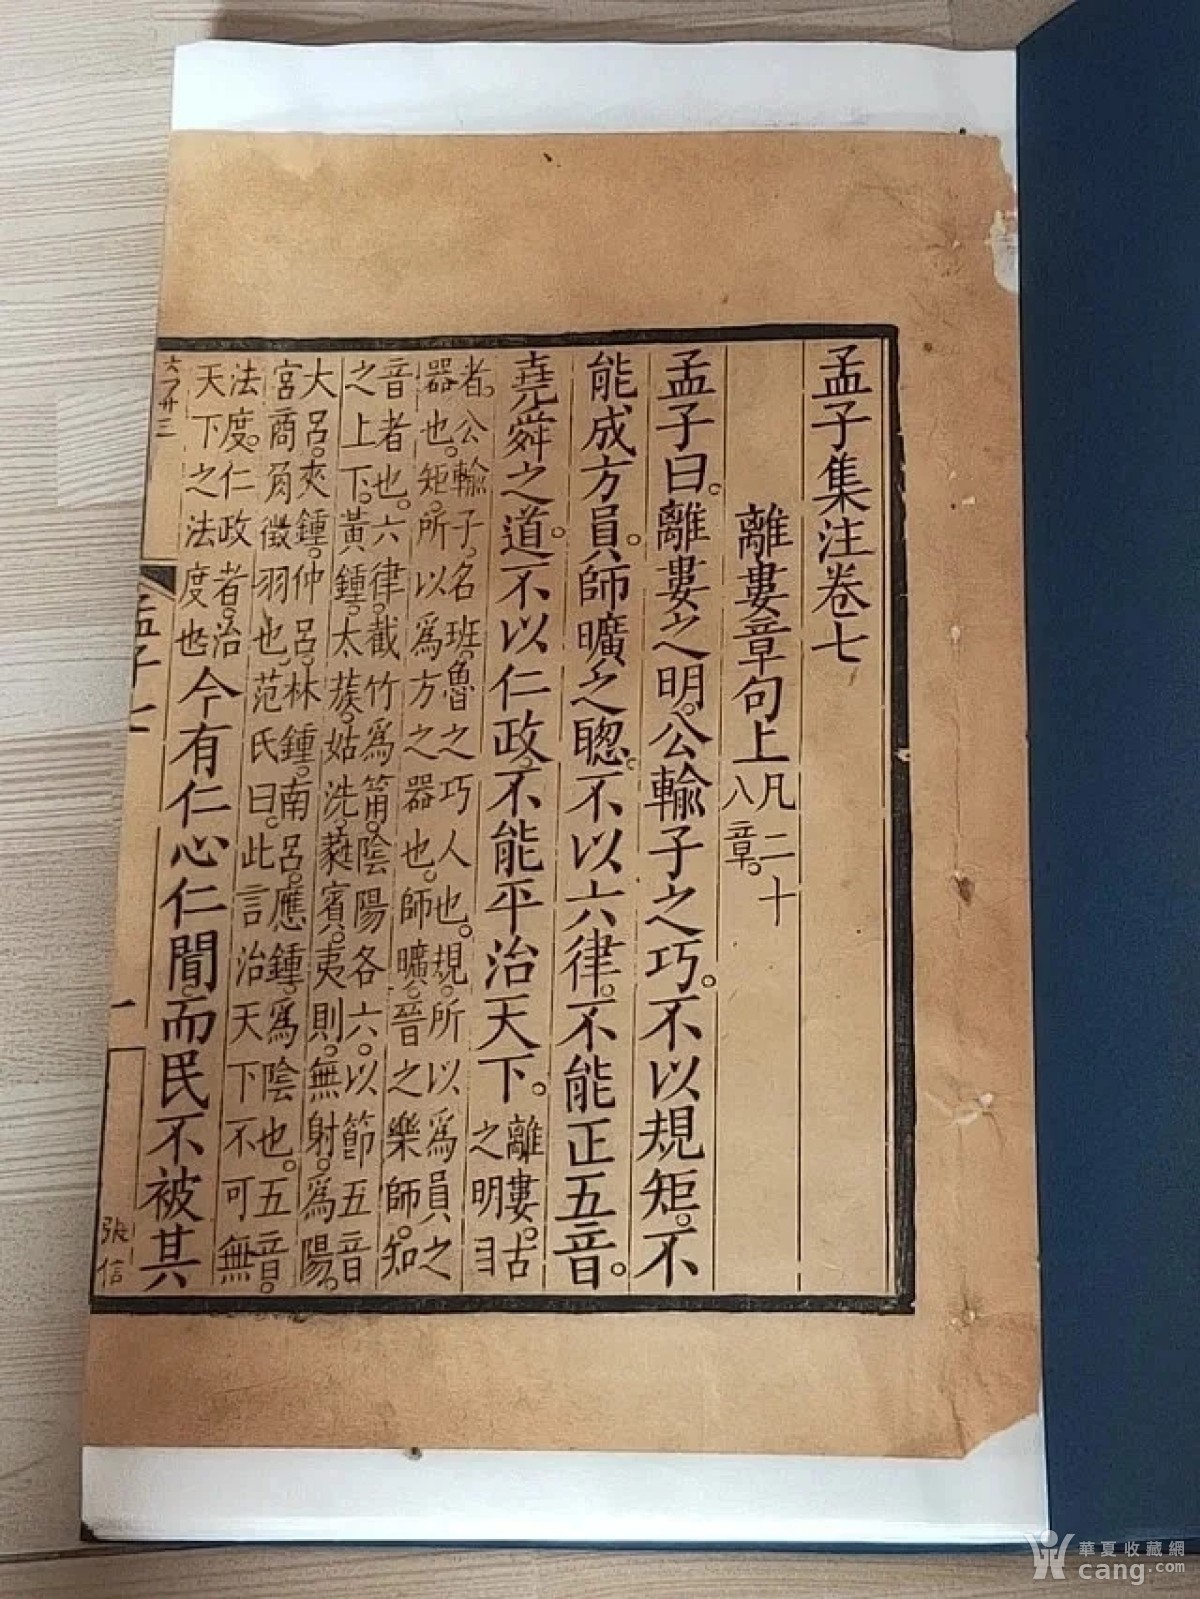 孟子集注卷七
離婁章句上凡二十
八章。
孟子曰。離婁之明。公輸子之巧。不以規矩。不
能成方員。師曠之聦。不以六律。不能正五音。
堯舜之道。不以仁政。不能平治天下。離婁。古
之明目
者。公輸子。名班。魯之巧人也。規。所以爲員之
器也。矩。所以爲方之器也。師曠。晉之樂師。知
音者也。六律。截竹爲筩。陰陽各六。以節五音
之上下。黃鍾。太蔟。姑洗。蕤賓。夷則。無射。爲陽。
大呂。夾鍾。仲呂。林鍾。南呂。應鍾。爲陰也。五音。
宮商角徵羽也。范氏曰。此言治天下不可無
法度。仁政者。治
天下之法度也。今有仁心仁聞。而民不被其
孟子七
一
張信
華夏收藏網
cang.com